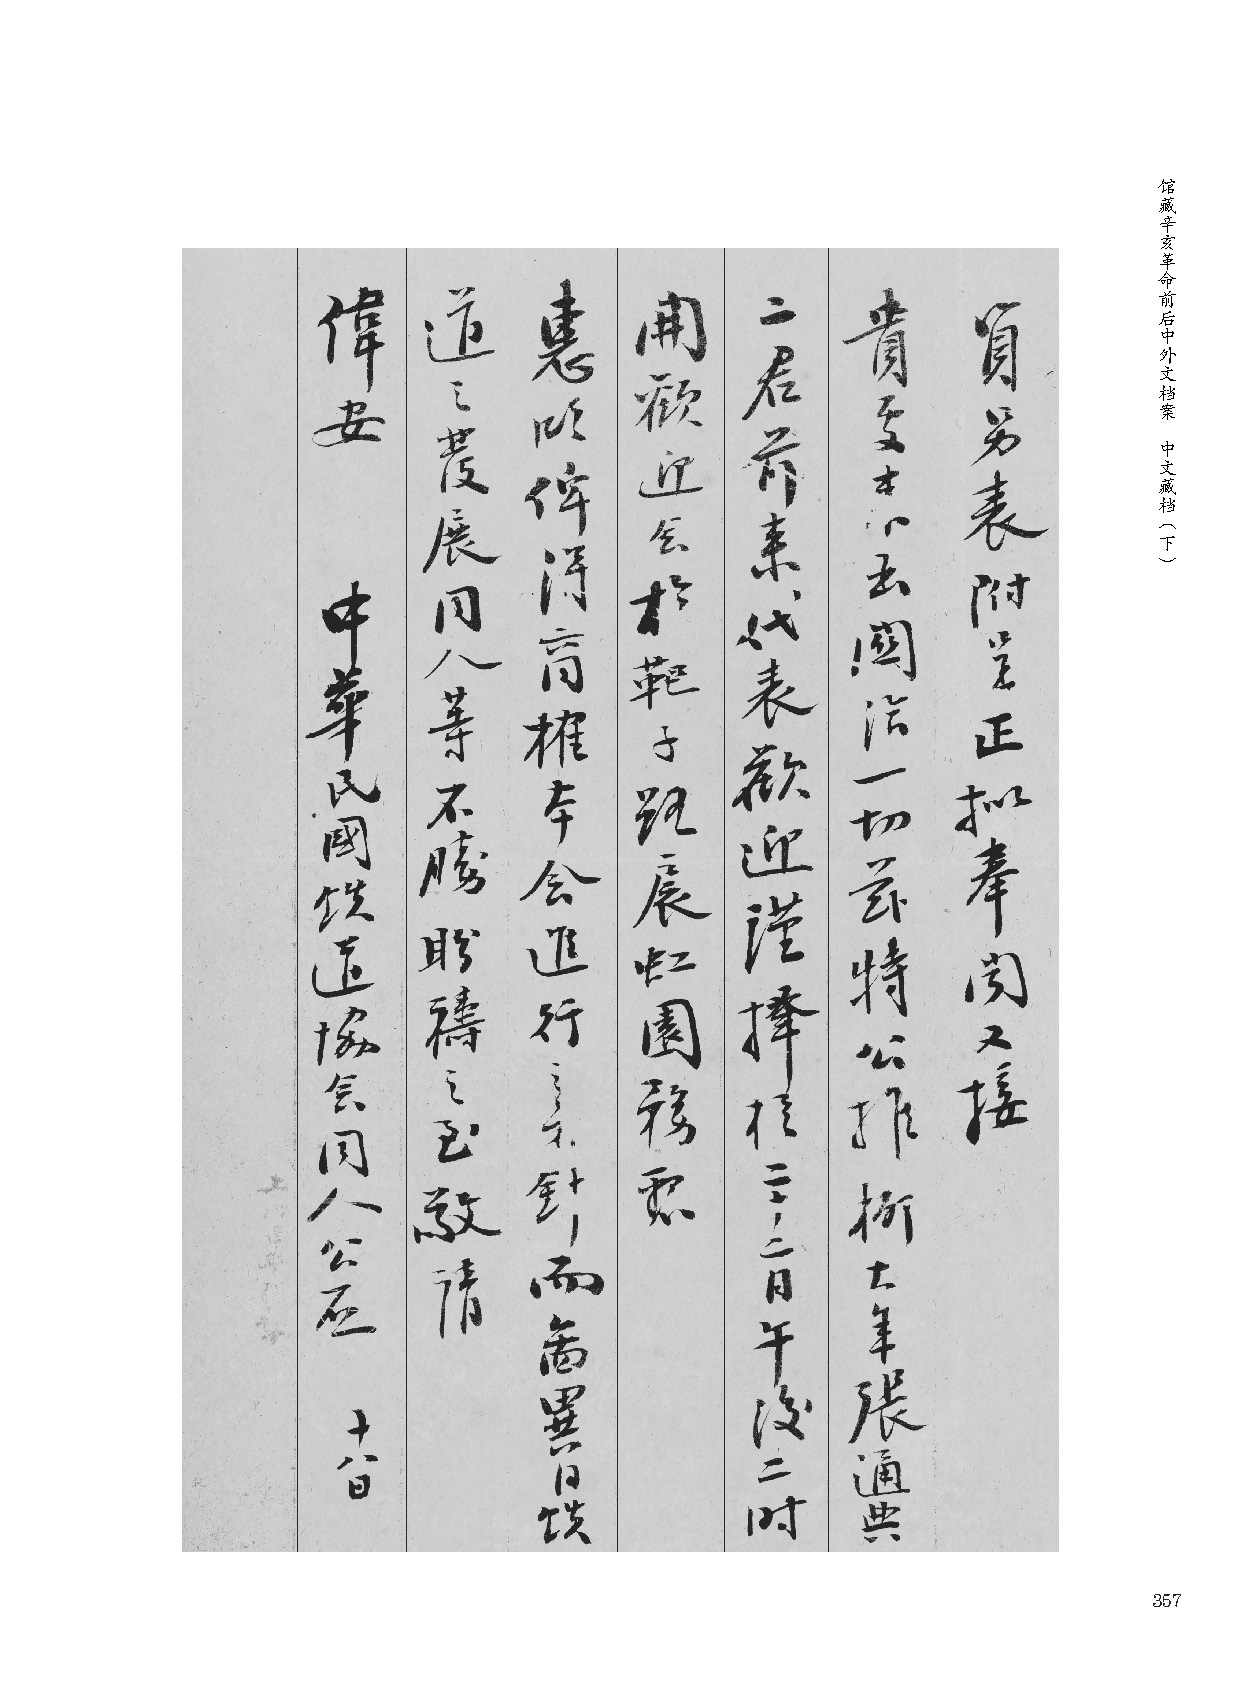 馆藏辛亥革命前后中外文档案 中文藏档（下）
員另表附呈正擬奉聞又接
貴處本 函關洽一切茲特公推柳大年張通典
二君前來代表歡迎謹擇於二十二日午後二時
開歡迎會於靶子路扆虹園務懇
惠臨俾得商榷本會進行之方針而圖異日鉄
道之發展同人等不勝盼禱之至敬請
偉安 中華民國鉄道協會同人公啟 十八日
357